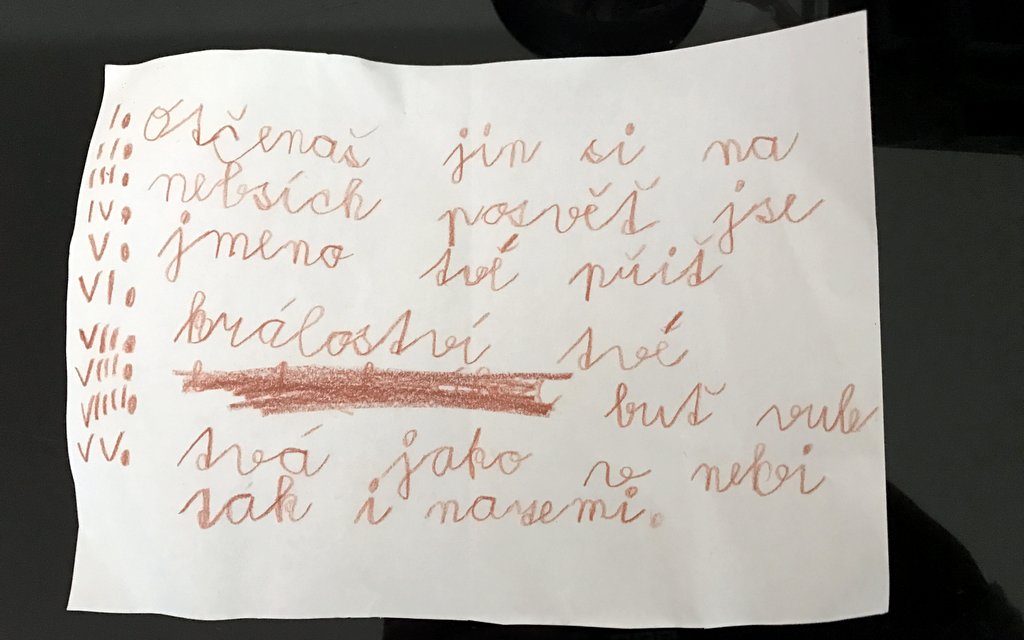 I. Otčenaš jin si na
II.
III. nebsích posvěť jse
IV.
V. jmeno tvé přiť
VI.
VII. králoství tvé
VIII.
VIIII. buť vule
VV. tvá jako v nebi
ták i nasemi.